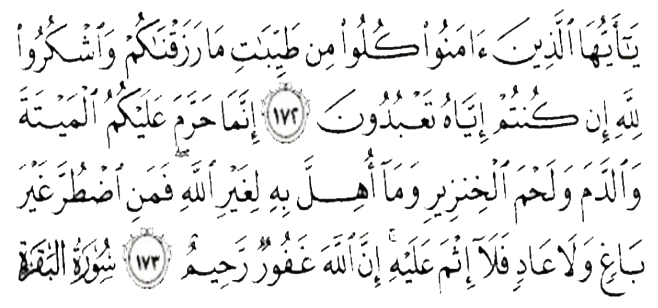 يَٰٓأَيُّهَا ٱلَّذِينَ ءَامَنُوا۟ كُلُوا۟ مِن طَيِّبَٰتِ مَا رَزَقْنَٰكُمْ وَٱشْكُرُوا۟
لِلَّهِ إِن كُنتُمْ إِيَّاهُ تَعْبُدُونَ ١٧٢ إِنَّمَا حَرَّمَ عَلَيْكُمُ ٱلْمَيْتَةَ
وَٱلدَّمَ وَلَحْمَ ٱلْخِنزِيرِ وَمَآ أُهِلَّ بِهِۦ لِغَيْرِ ٱللَّهِ فَمَنِ ٱضْطُرَّ غَيْرَ
بَاغٍ وَلَا عَادٍ فَلَآ إِثْمَ عَلَيْهِ ۚ إِنَّ ٱللَّهَ غَفُورٌ رَّحِيمٌ ١٧٣ سُورَةُ البَقَرَةِ